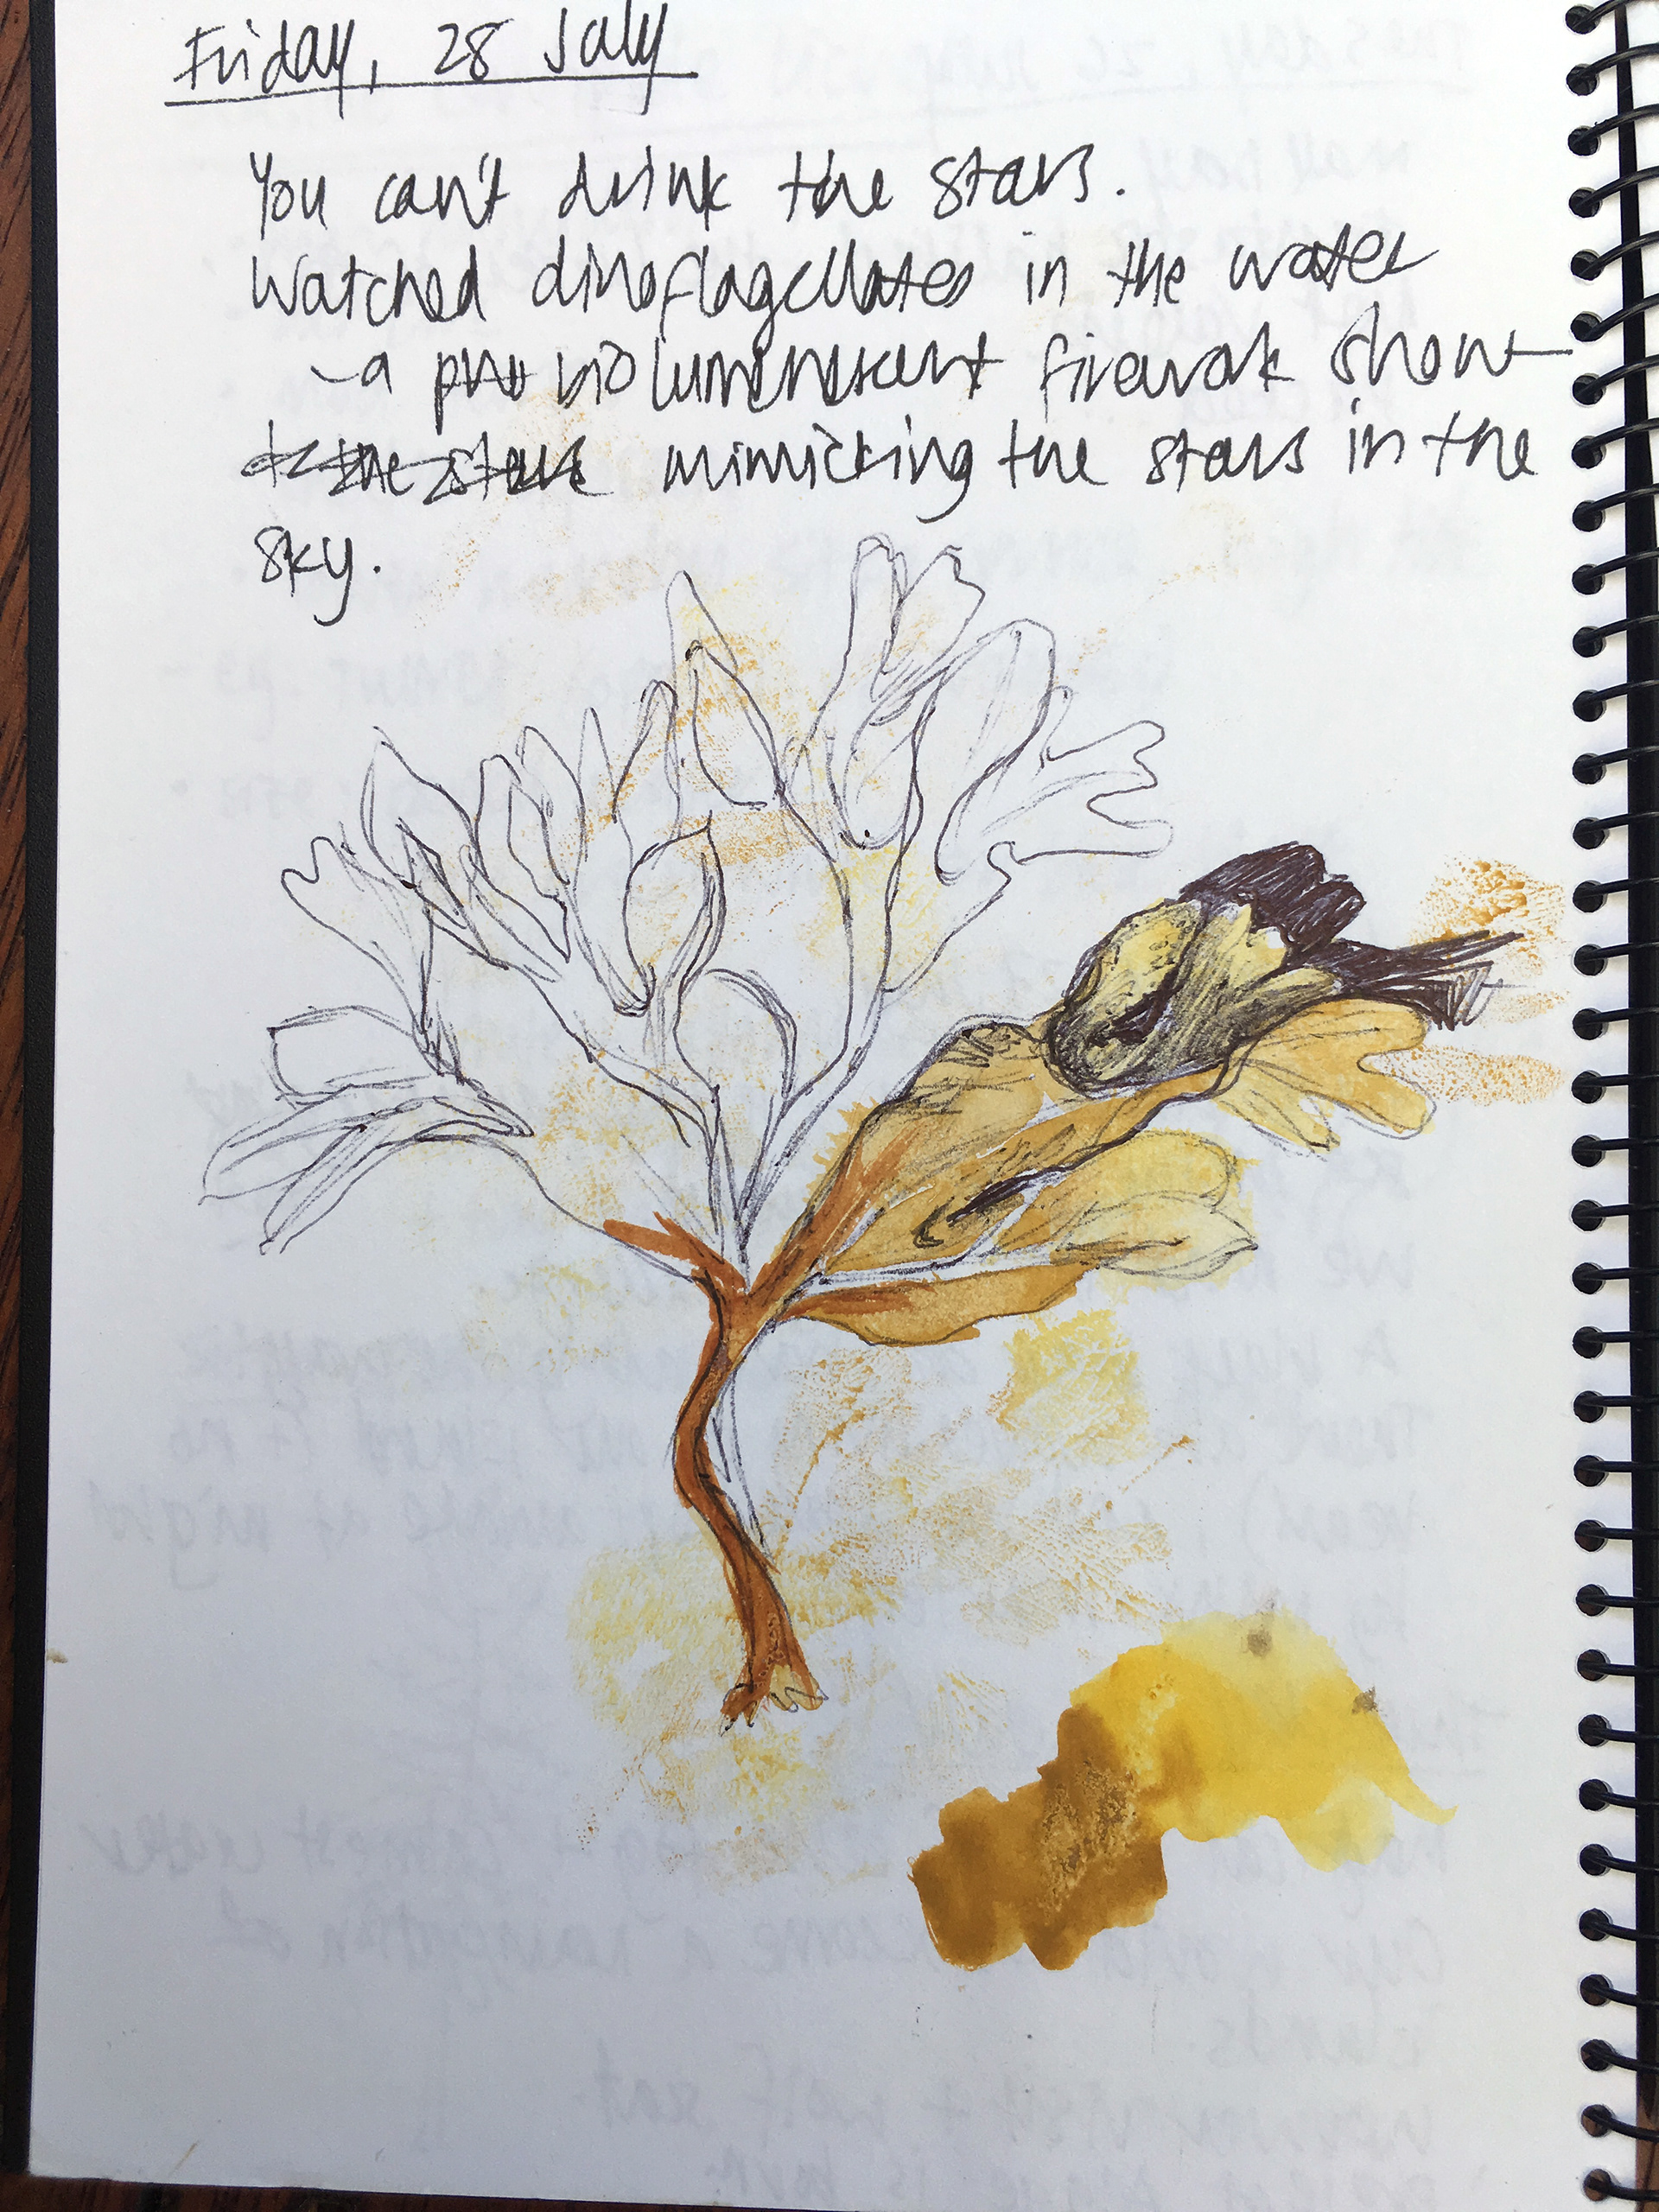 Friday, 28 July
You can't drink the stars.
Watched dinoflagellates in the water
- a pho bioluminescent firework show
to the stars mimicking the stars in the
sky.